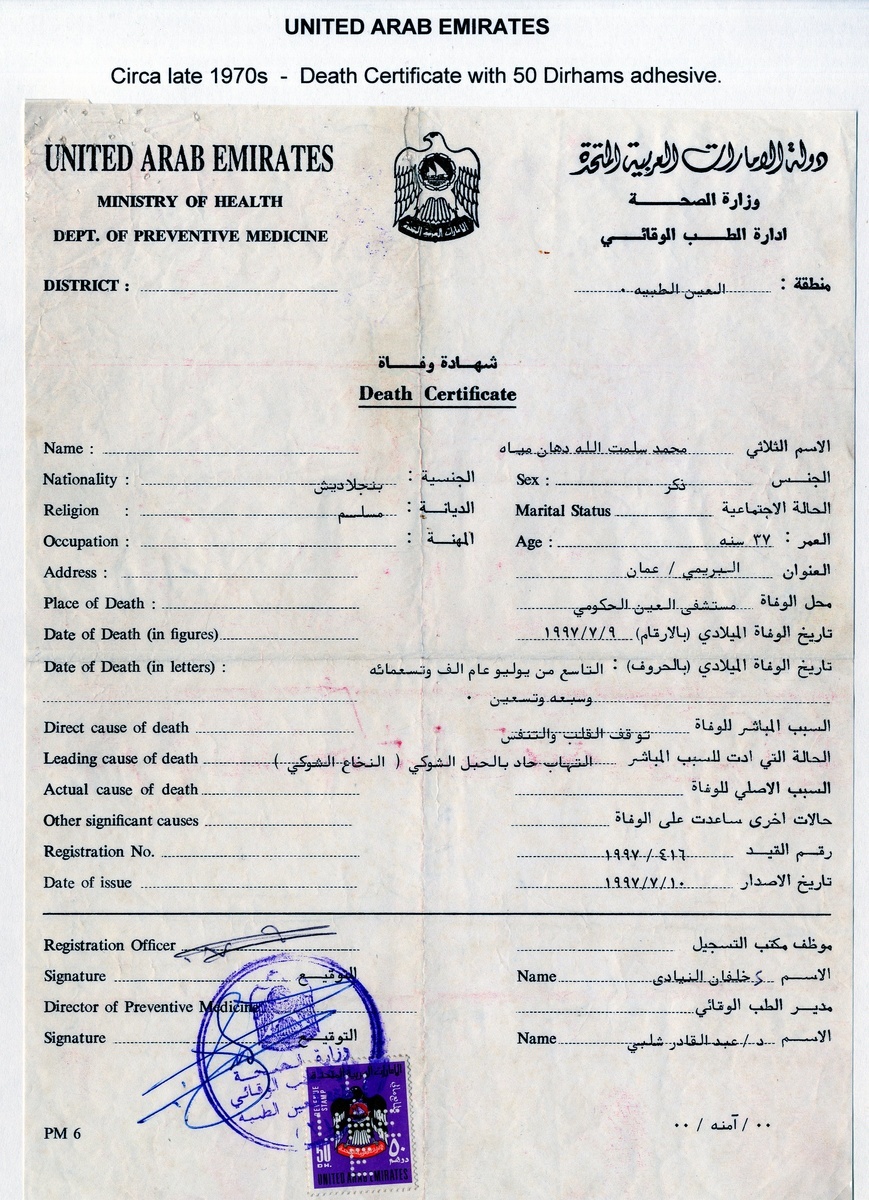 UNITED ARAB EMIRATES
Circa late 1970s - Death Certificate with 50 Dirhams adhesive.
UNITED ARAB EMIRATES دولة الامارات العربية المتحدة
MINISTRY OF HEALTH وزارة الصحة
DEPT. OF PREVENTIVE MEDICINE ادارة الطب الوقائي
الامارات العربية المتحدة
DISTRICT : منطقة : العين الطبيه .
شهادة وفاة
Death Certificate
Name : الاسم الثلاثي محمد سلمت الله دهان مياه
Nationality : بنجلاديش الجنسية : Sex : ذكر الجنس
Religion : مسلم الديانة : Marital Status الحالة الاجتماعية
Occupation : المهنة : Age : ٣٧ سنه العمر :
Address : العنوان البريمي / عمان
Place of Death : محل الوفاة مستشفى العين الحكومي
Date of Death (in figures) تاريخ الوفاة الميلادي (بالارقام) ١٩٩٧/٧/٩
Date of Death (in letters) : تاريخ الوفاة الميلادي (بالحروف) : التاسع من يوليو عام الف وتسعمائه
وسبعه وتسعين .
Direct cause of death السبب المباشر للوفاة توقف القلب والتنفس
Leading cause of death الحالة التي ادت للسبب المباشر التهاب حاد بالحبل الشوكي ( النخاع الشوكي )
Actual cause of death السبب الاصلي للوفاة
Other significant causes حالات اخرى ساعدت على الوفاة
Registration No. رقم القيد ٤١٦ / ١٩٩٧
Date of issue تاريخ الاصدار ١٩٩٧/٧/١٠
Registration Officer موظف مكتب التسجيل
Signature التوقيع Name خلفان النيادى الاسم
Director of Preventive Medicine مدير الطب الوقائي
Signature التوقيع Name د/عبد القادر شلبي الاسم
وزارة الصحة
الطب الوقائي
العين الطبيه
الامارات العربية المتحدة
REVENUE STAMP
50 DH. ٥٠ درهم
UNITED ARAB EMIRATES
PM 6 ٠٠ / آمنه / ٠٠